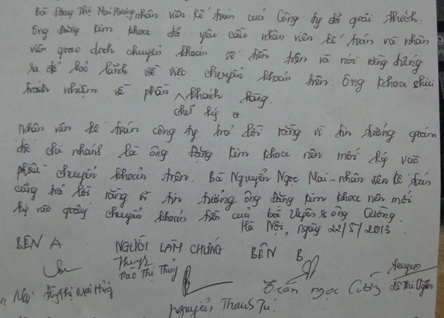 Bà Đồng Thị Mai Hương nhân viên kế toán của Công ty đã giải thích:
Ông Đồng Kim Khoa đã yêu cầu nhân viên kế toán và nhân
viên giao dịch chuyển khoản số tiền trên và nói rằng đứng
ra để bảo lãnh về việc chuyển khoản trên. Ông Khoa chịu
trách nhiệm về phần khách hàng.
chữ ký
Nhân viên kế toán công ty trả lời rằng vì tin tưởng giám
đốc chi nhánh là ông Đồng Kim Khoa nên mới ký vào
phiếu chuyển khoản trên. Bà Nguyễn Ngọc Mai - nhân viên kế toán
cũng trả lời rằng vì tin tưởng ông Đồng Kim Khoa nên mới
ký vào giấy chuyển khoản tiền của bà Uyên & ông Cường.
Hà Nội, ngày 22/5/2013
BÊN A NGƯỜI LÀM CHỨNG BÊN B
Đào Thị Thủy
Trần Ngọc Cường
Nguyễn Thanh Tú